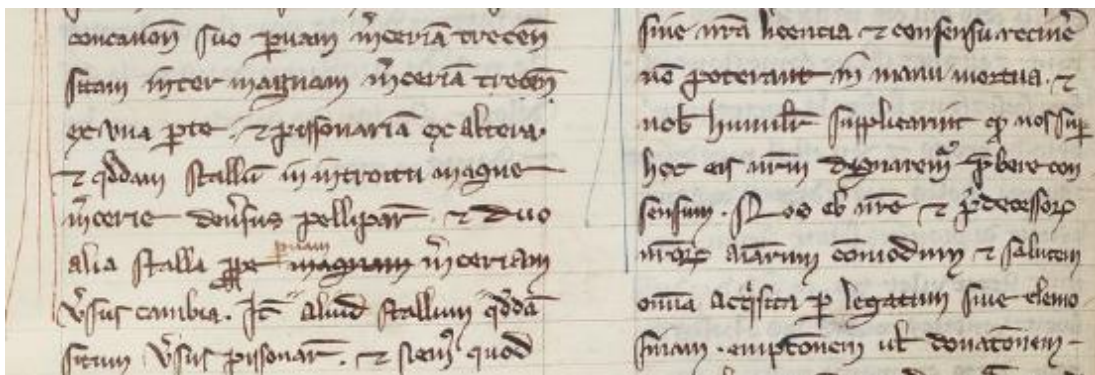 concanoñ suo ꝑuam m̃ceriã trecẽn
sitam inter magnam m̃ceriã trecẽn
ex vna ꝑte . ⁊ pissonariã ex altera .
⁊ qd̃dam stallũ in introitu magne
m̃cerie deṽsus pellipar̃ . ⁊ duo
alia stalla ꝓpe magnam ꝑuam m̃ceriam
ṽsus cambia . Itẽ aliud stallum qd̃dã
situm ṽsus pissonar̃ . ⁊ quod
sine nr̃a licencia ⁊ consensu retinẽ
nõ poterant in manu mortua . ⁊
nob̃ humilit̃ supplicarint ꝙ nos suꝑ
hoc eis nr̃m dignarem̃ p̃bere con
sensum . Nos ob nr̃e ⁊ p̃decessoꝝ
nr̃oꝝ aĩarum cõmodum ⁊ salutem
omnia acq̃sita ꝑ legatum siue elemo
sinam . emptõnem ul̃ donatõnem